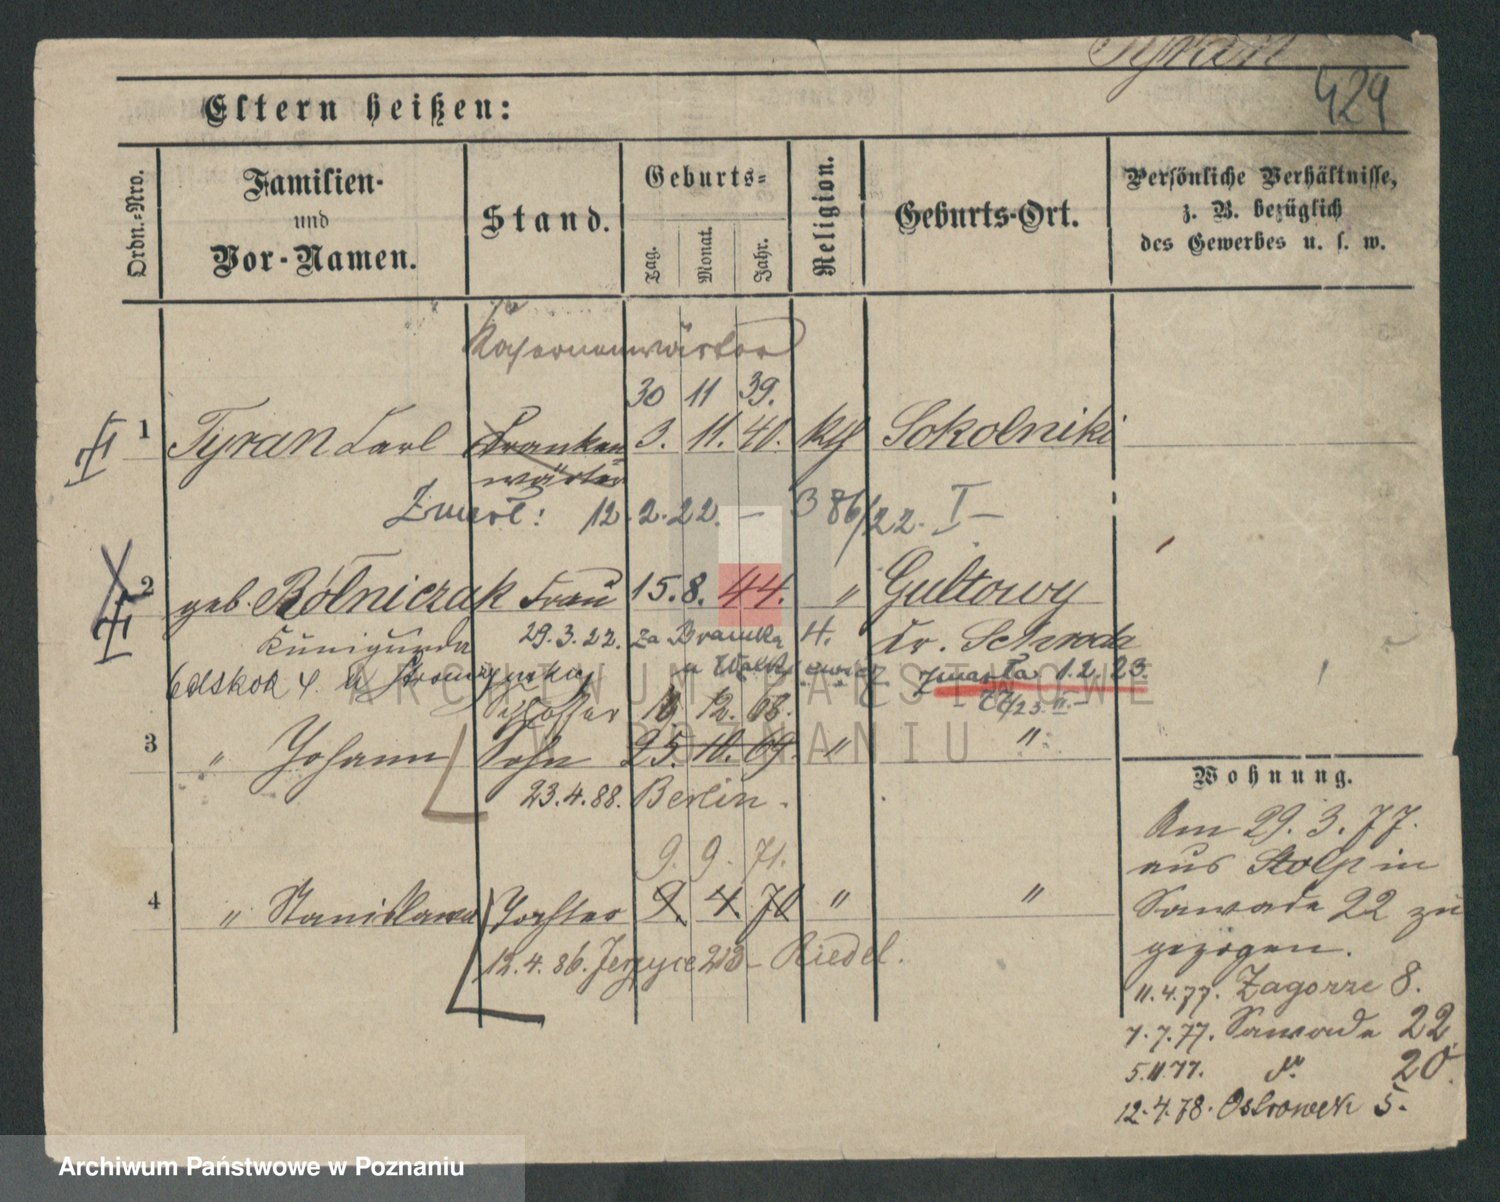 Tyran
424
Eltern heißen:
Ordn.-Nro.
Familien-
und
Vor-Namen.
Stand.
Geburts-
Tag.
Monat.
Jahr.
Religion.
Geburts-Ort.
Persönliche Verhältnisse,
z. B. bezüglich
des Gewerbes u. s. w.
Kasernenwärter
30 11 39.
1 Tyran Carl Kranken 3. 11. 40. kth Sokolniki
wärter
Zmarł: 12.2.22. — 386/22. I —
2 geb. Bólniczak Frau 15. 8. 44. " Gultowy
Kunigunda 29.3.22. za Bramką 4. Kr. Schroda
u Zmarła 1.2.23.
Schlosser 16 12. 68.
3 " Johann Sohn 25. 10. 69. " "
23.4.88. Berlin.
9. 9. 71.
4 " Stanislawa Tochter 9 4 70 " "
12.4.86. Jerzyce 213 - Riedel.
Wohnung.
Am 29. 3. 77.
aus Stolp in
Sawade 22 zu
gezogen.
11.4.77. Zagorze 8.
7.7.77. Sawade 22
5.11.77. do 20.
12.4.78. Ostrowek 5.
ARCHIWUM PAŃSTWOWE
W POZNANIU
Archiwum Państwowe w Poznaniu